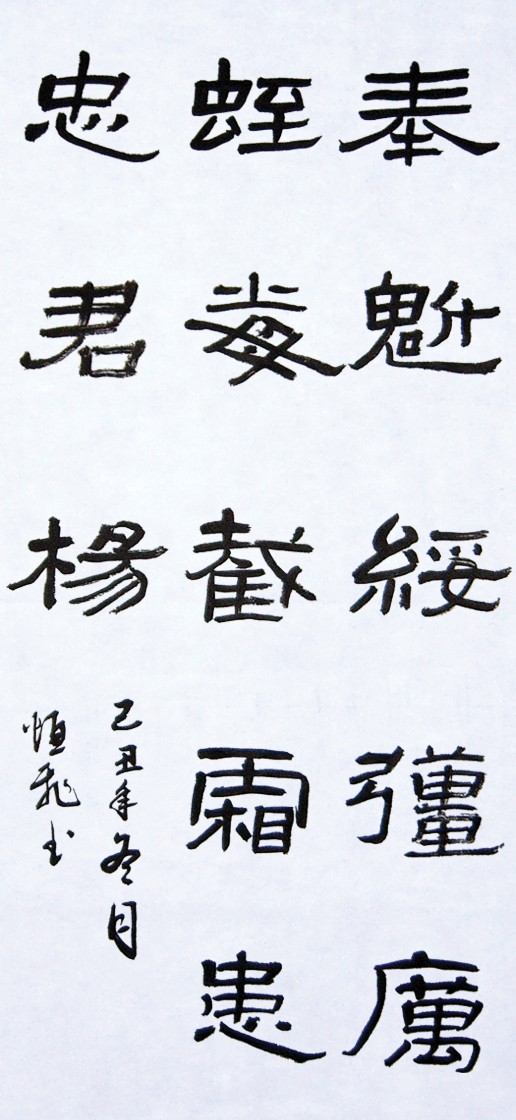 奉魁綏彊厲
蛭毒截霜患
忠君楊
己丑年冬月
恒飛书